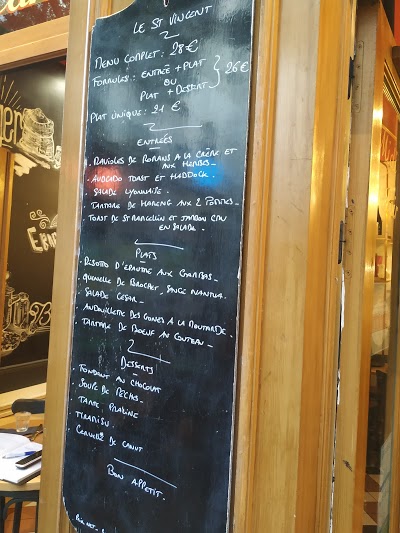 LE ST VINCENT
MENU COMPLET : 28 €
FORMULES : ENTRÉE + PLAT
OU
PLAT + DESSERT
} 26 €
PLAT UNIQUE : 21 €
ENTRÉES
. RAVIOLES DE ROMANS A LA CRÈME ET
AUX HERBES -
. AVOCADO TOAST ET HADDOCK.
. SALADE LYONNAISE.
. TARTARE DE HARENG AUX 2 POMMES -
. TOAST DE ST MARCELLIN ET JAMBON CRU
EN SALADE -
PLATS
. RISOTTO D'EPEAUTRE AUX GAMBAS -
. QUENELLE DE BROCHET, SAUCE NANTUA.
. SALADE CESAR -
. ANDOUILLETTE DES GONES A LA MOUTARDE.
. TARTARE DE BOEUF AU COUTEAU -
DESSERTS
. FONDANT AU CHOCOLAT
. SOUPE DE PÊCHES -
. TARTE PRALINE
. TIRAMISU.
. CERVELLE DE CANUT
BON APPETIT.